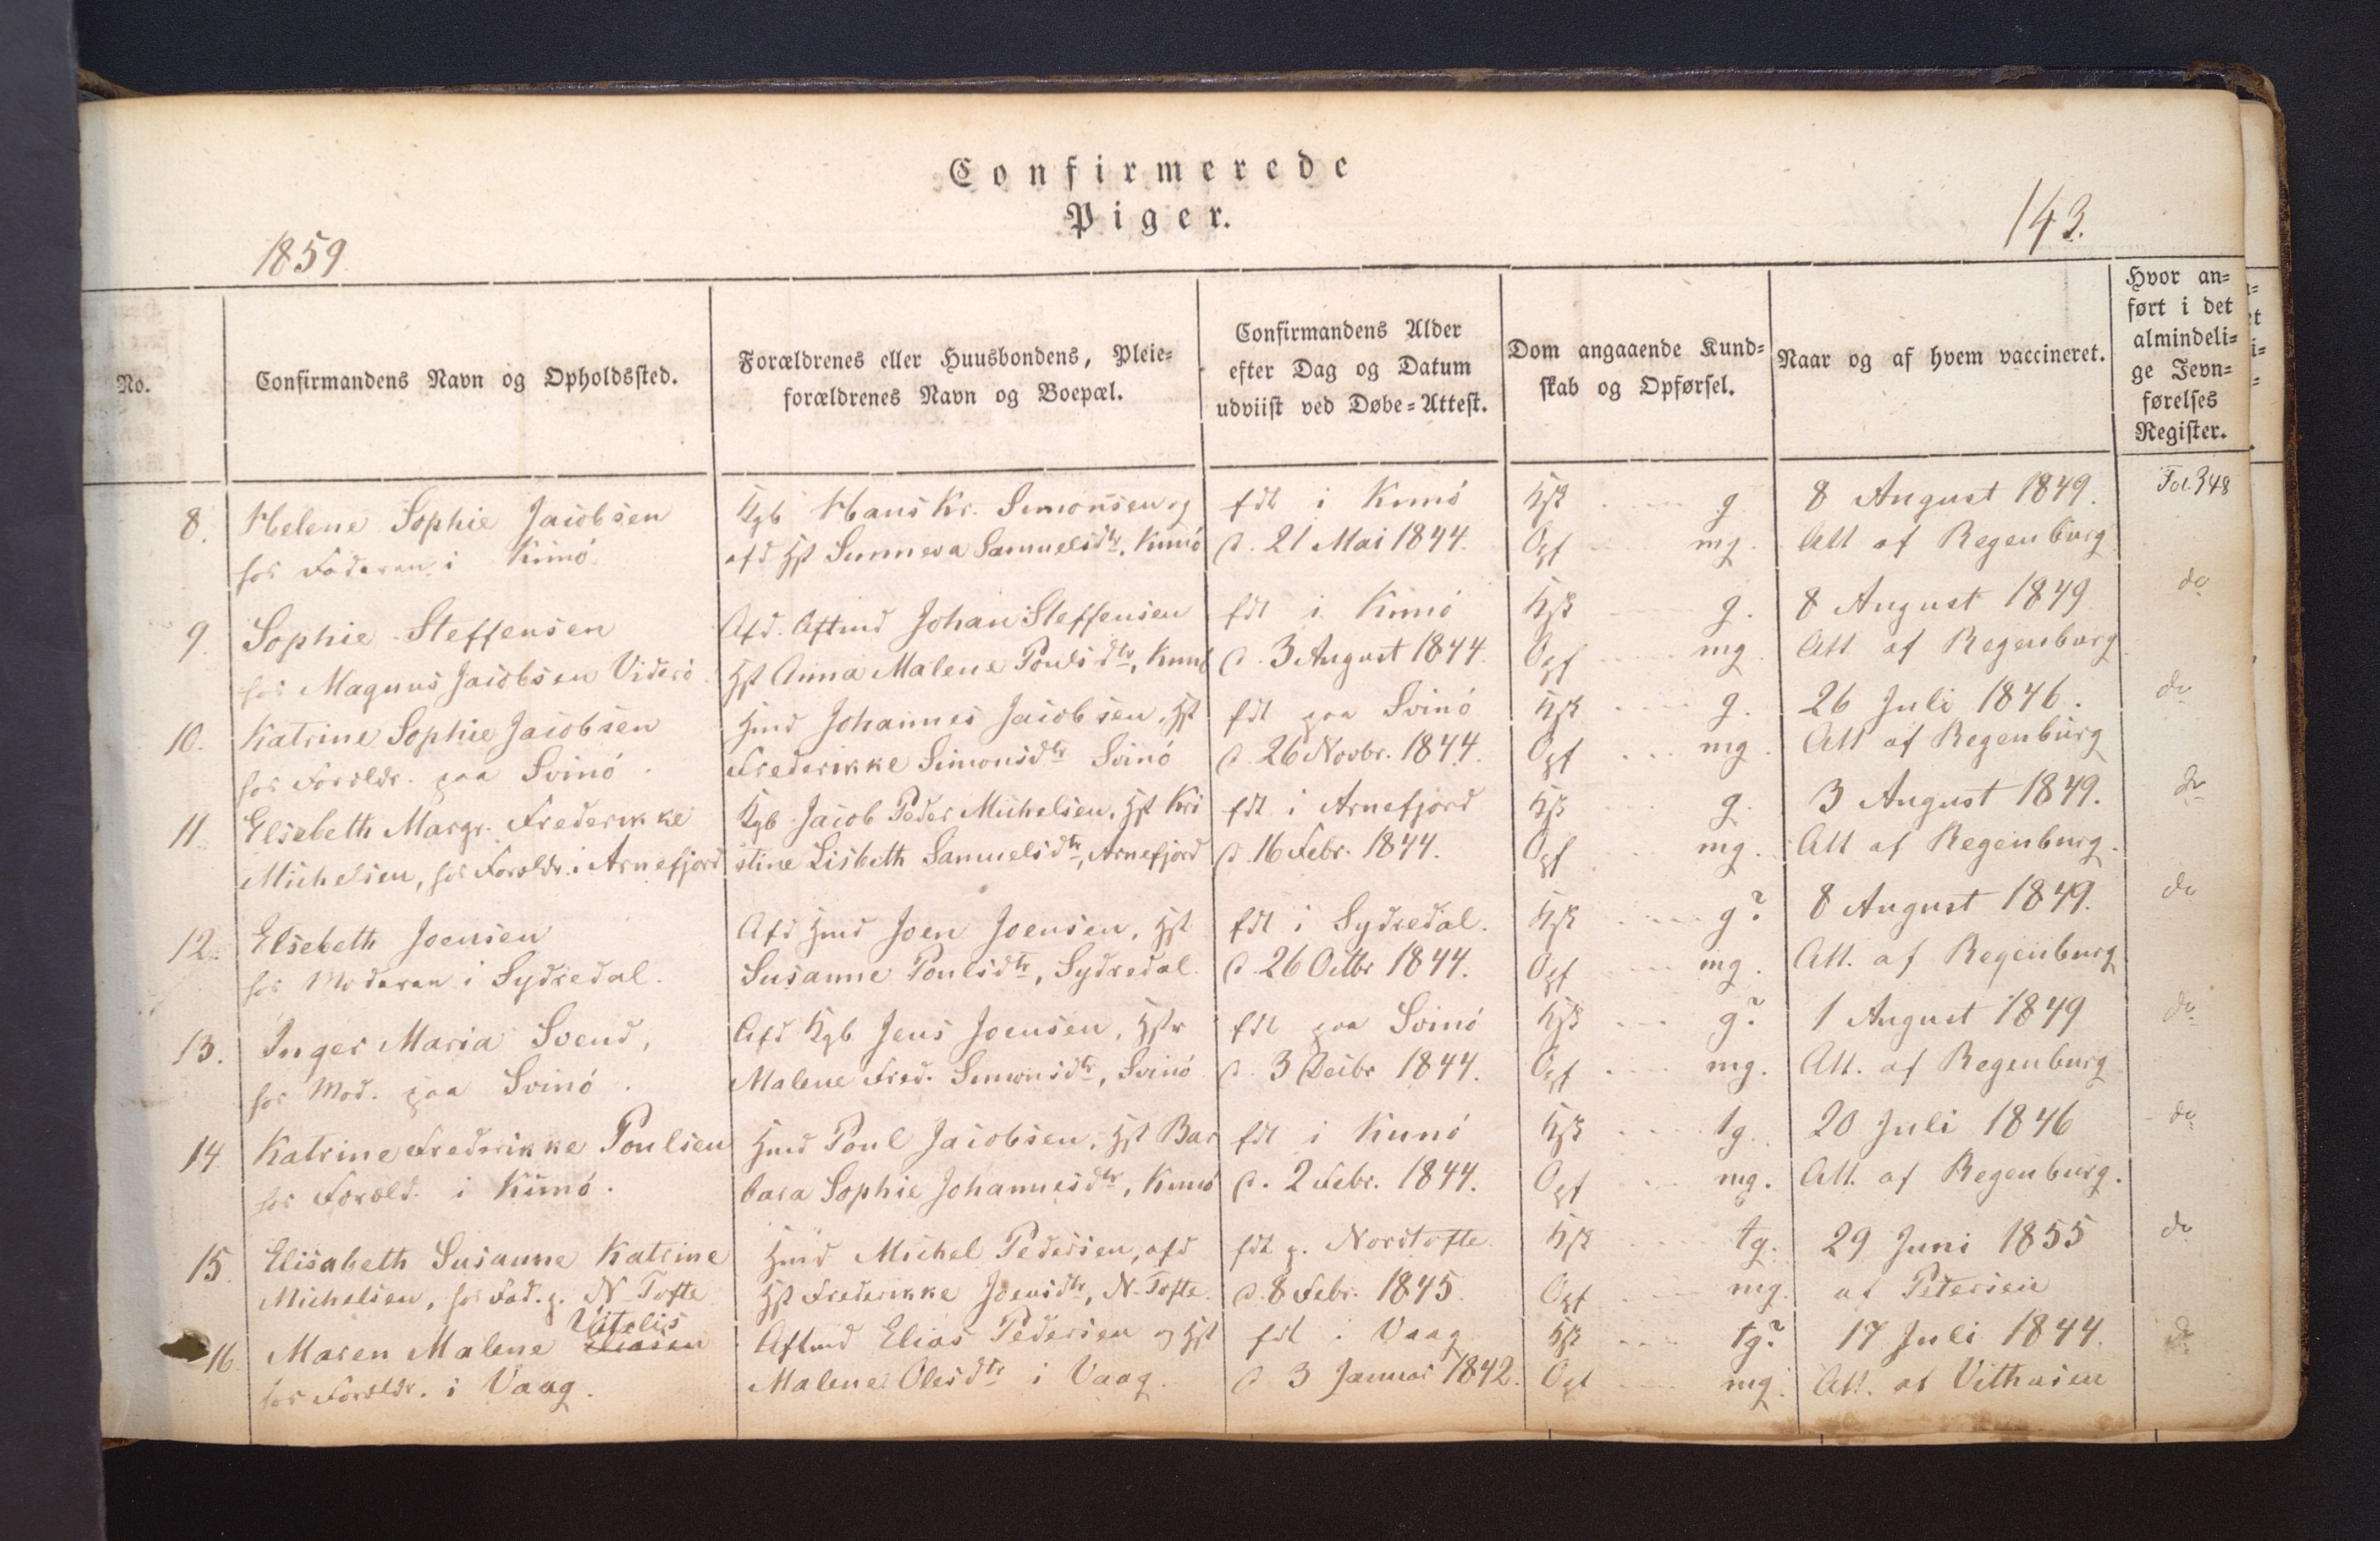 Confirmerede
Piger.
1859
143.
No.
Confirmandens Navn og Opholdssted.
Forældrenes eller Huusbondens, Pleie-
forældrenes Navn og Boepæl.
Confirmandens Alder
efter Dag og Datum
udviist ved Døbe-Attest.
Dom angaaende Kund-
skab og Opførsel.
Naar og af hvem vaccineret.
Hvor an-
ført i det
almindeli-
ge Jevn-
førelses
Register.
8. Helene Sophie Jacobsen Kgb Hans Kr. Simonsen og fdt i Kunö Kjsk g 8 August 1849. Fol. 348
hos Faderen i Kunö afd Hst Sunneva Samuelsdtr, Kunö d. 21 Mai 1844. Opf mg. Att af Regenburg
9. Sophie Steffensen Afd. Aftmd Johan Steffensen fdt i Kunö Kjsk g. 8 August 1849 do
hos Magnus Jacobsen Viderö Hst Anna Malene Poulsdtr, Kunö d. 3 August 1844. Opf mg Att af Regenburg
10. Katrine Sophie Jacobsen Hmd Johannes Jacobsen, Hst fdt paa Svinö Kjsk g. 26 Juli 1846. do
hos Forældr. paa Svinö. Frederikke Simonsdtr Svinö d. 26 Novbr. 1844. Opf mg. Att af Regenburg
11. Elsebeth Margr. Frederikke Kgb Jacob Peder Michelsen, Hst Kri fdt i Arnefjord Kjsk g. 3 August 1849. do
Michelsen, hos Forældr. i Arnefjord stine Lisbeth Samuelsdtr, Arnefjord d. 16 Febr. 1844. Opf mg. Att af Regenburg.
12. Elsebeth Joensen Afd Hmd Joen Joensen, Hst fdt i Sydredal. Kjsk g? 8 August 1849. do
hos Moderen i Sydredal. Susanne Poulsdtr, Sydredal. d. 26 Octbr 1844. Opf mg. Att. af Regenburg
13. Inger Maria Svend, Afd Kgb Jens Joensen, Hst fdt paa Svinö Kjsk g? 1 August 1849 do
hos Mod. paa Svinö. Malene Fred. Simonsdtr, Svinö d. 3 Decbr 1844. Opf mg. Att. af Regenburg
14. Katrine Frederikke Poulsen Hmd Poul Jacobsen, Hst Bar fdt i Kunö Kjsk tg. 20 Juli 1846 do
hos Foræld. i Kunö. bara Sophie Johannesdtr, Kunö d. 2 Febr. 1844. Opf mg. Att. af Regenburg.
15. Elisabeth Susanne Katrine Hmd Michel Pedersen, afd fdt p. Nordtofte Kjsk tg. 29 Juni 1855 do
Michelsen, hos Fad. p. N-Tofte Hst Frederikke Joensdtr, N-Tofte. d. 8 Febr. 1845. Opf mg. af Petersen
Vitalis
16. Maren Malene Eliasen Aftmd Elias Pedersen og Hst fdt i Vaag Kjsk tg? 17 Juli 1844. do
hos Forældr. i Vaag. Malene Olesdtr i Vaag. d 3 Januar 1842. Opf mg. Att. af